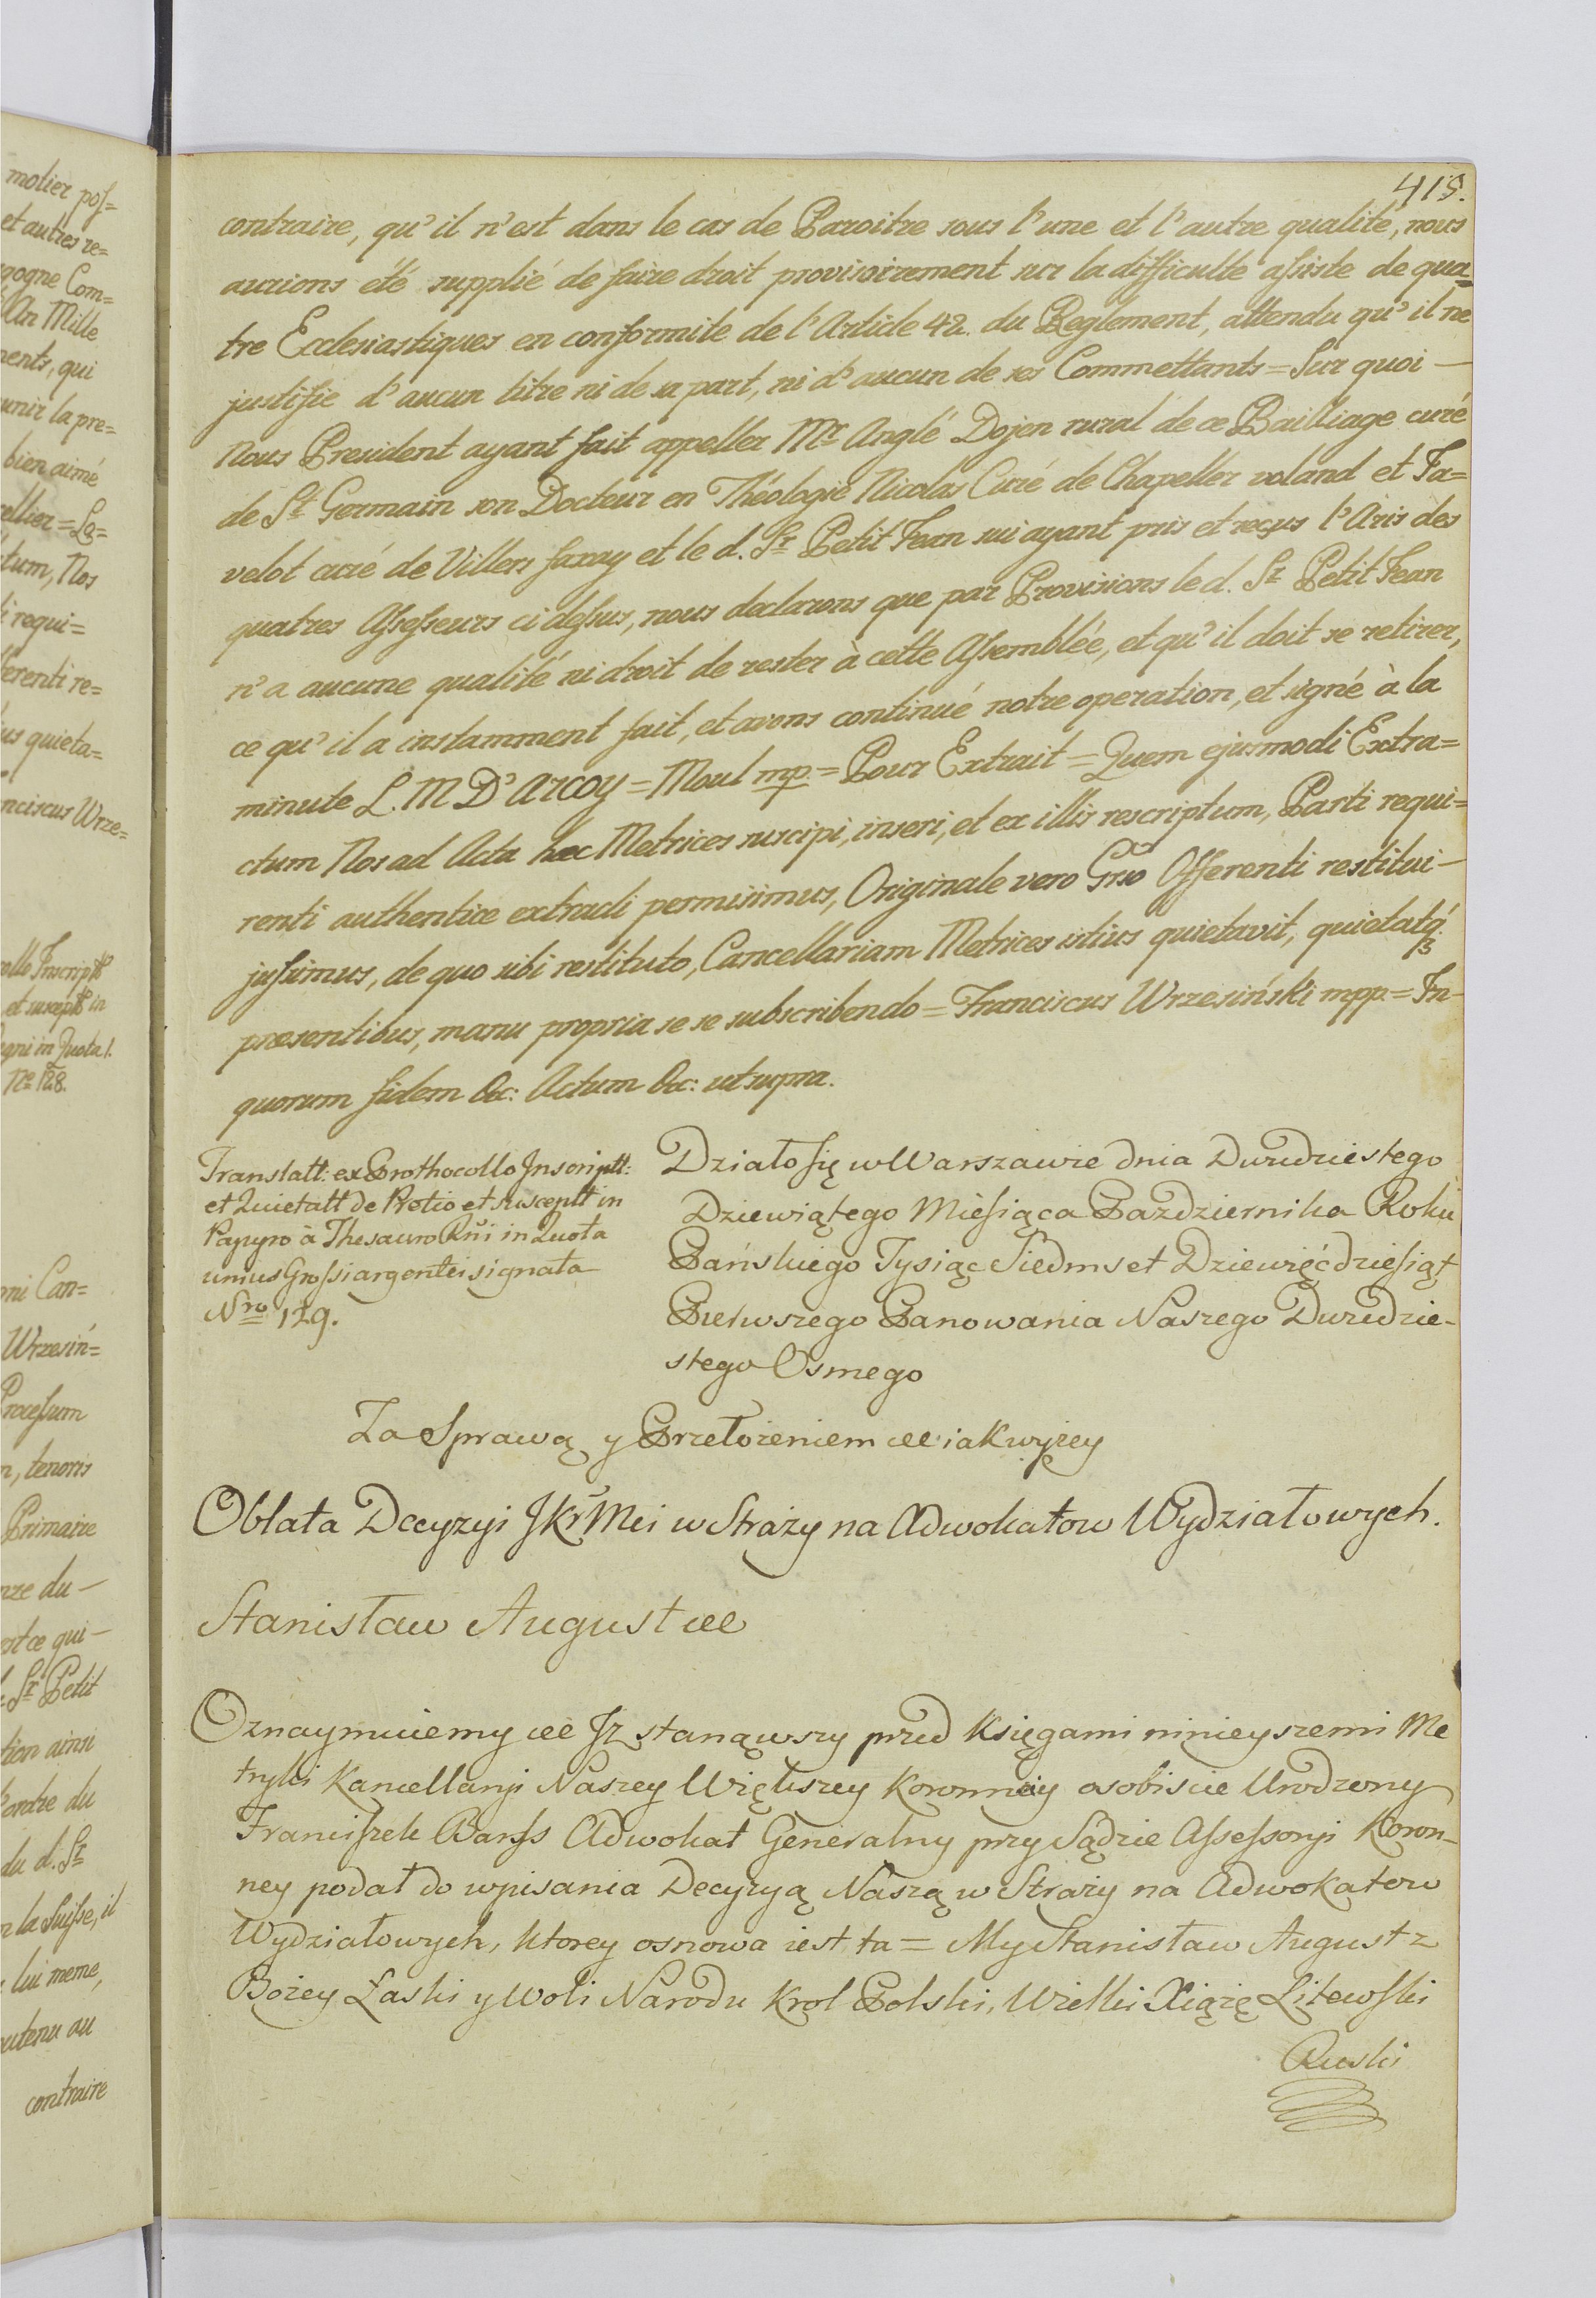 motier pos=
et autres re=
gogne Com=
An Mille
ments, qui
unir la pre=
bien aimé
ellier = La=
tum, Nos
requi=
ferenti re=
us quieta=
nciscus Wrze=
collo Inscriptt
et suscept in
gni in Quota 1.
No 128.
oni Can=
Wrzesiń=
Processum
n, tenoris
Primaire
nze du —
est ce qui —
Sr Petit
tion ainsi
l'ordre du
du d. Sr
la Suisse, il
lui meme,
outenu au
contraire
415.
contraire, qu'il n'est dans le cas de Paroitre sous l'une et l'autre qualité, nous
aurions été supplié de faire droit provisoirement sur la difficulte assiste de qua=
tre Ecclesiastiques en conformite de l'Article 42. du Reglement, attendu qu'il ne
justifie d'aucun titre ni de sa part, ni d'aucun de ses Commettants = Sur quoi —
Nous President ayant fait appeller Mr Anglé Dojen rural de ce Bailliage curé
de St Germain son Docteur en Théologie Nicolas Curé de Chapeller voland et Fa=
velot curé de Villers faray et le d. Sr Petit Jean sui ayant pris et reçus l'Avis des
quatres Assesseurs ci dessus, nous declarons que par Provisions le d. Sr Petit Jean
n'a aucune qualité ni droit de rester à cette Assemblée, et qu'il doit se retirer,
ce qu'il a instamment fait, et avons continué notre operation, et signé à la
minute L. M D'Arcoy = Moul mp. = Pour Extrait = Quem ejusmodi Extra=
ctum Nos ad Acta haec Metrices suscipi, inseri, et ex illis rescriptum, Parti requi=
renti authentice extradi permisimus, Originale vero Grso Offerenti restitui —
jussimus, de quo sibi restituto, Cancellariam Metrices istius quietavit, quietatq́3
praesentibus, manu propria se se subscribendo = Franciscus Wrzesiński mpp. = In
quorum fidem &c: Actum &c: ut supra.
Translatt: ex Prothocollo Inscriptt:
et Quietatt de Protio et suscept in
Papyro à Thesauro Rni in Quota
unius Grossi argentei signata
Nro 129.
Działo się w Warszawie dnia Dwudziestego
Dziewiątego Miesiąca Października Roku
Pańskiego Tysiąc Siedmset Dziewięćdziesiąt
Pierwszego Panowania Naszego Dwudzie-
stego Osmego
Za Sprawą y Przełożeniem &c iak wyżey
Oblata Decyzyi JKr Mci w Straży na Adwokatow Wydziałowych.
Stanisław August &c
Oznaymuiemy &c Jż stanąwszy przed Księgami ninieyszemi Me
tryki Kancellaryi Naszey Większey Koronney osobiscie Urodzony
Franciszek Barss Adwokat Generalny przy Sądzie Assessoryi Koron-
ney podał do wpisania Decyzyą Naszą w Straży na Adwokatow
Wydziałowych, ktorey osnowa iest ta = My Stanisław August z
Bożey Łaski y Woli Narodu Krol Polski, Wielki Xiążę Litewski
Ruski